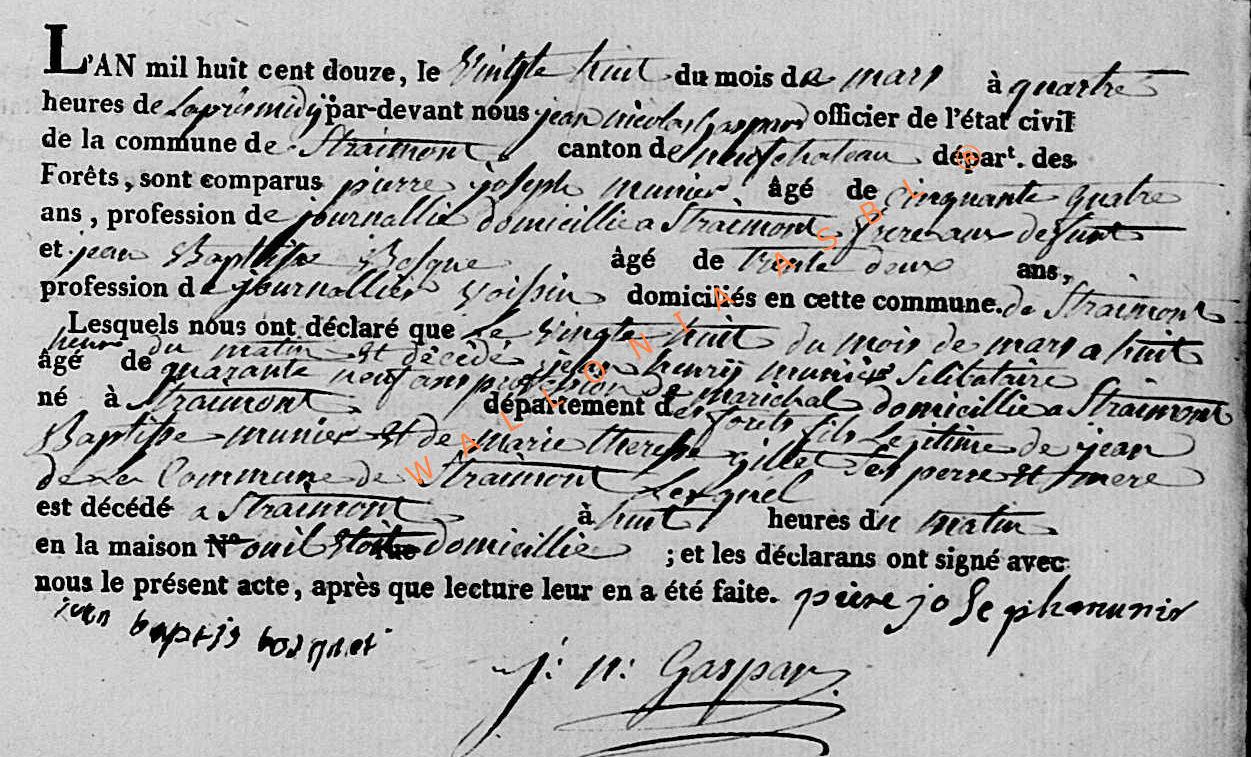 L'AN mil huit cent douze, le vingte huit du mois de mars à quartre
heures de laprèsmidÿ par-devant nous jean nicolas Gaspard officier de l'état civil
de la commune de Straimont canton de neufchateau départ. des
Forêts, sont comparus pierre joseph munier âgé de cinquante quatre
ans, profession de journallié domicillié a Straimont frere aux defunt
et jean Baptiste Bosque âgé de trente deux ans,
profession de journallier voissin domiciliés en cette commune. de Straimont
Lesquels nous ont déclaré que le vingte huit du mois de mars a huit
heure du matin est décédé jean henrÿ munier Selibataire
âgé de quarante neuf ans profession de marichal domicillié a Straimont
né à Straimont département des forets fils Legitime de jean
Baptiste munier et de marie theresse gillet Ses perre et mere
de la Commune de Straimont Lesquel
est décédé a Straimont à huit heures du matin
en la maison N° ouil Etoite rue domicillié ; et les déclarans ont signé avec
nous le présent acte, après que lecture leur en a été faite. piere joseph munir
jean baptis bosquet
j: n: Gaspar
WALLONIA ASBL ®